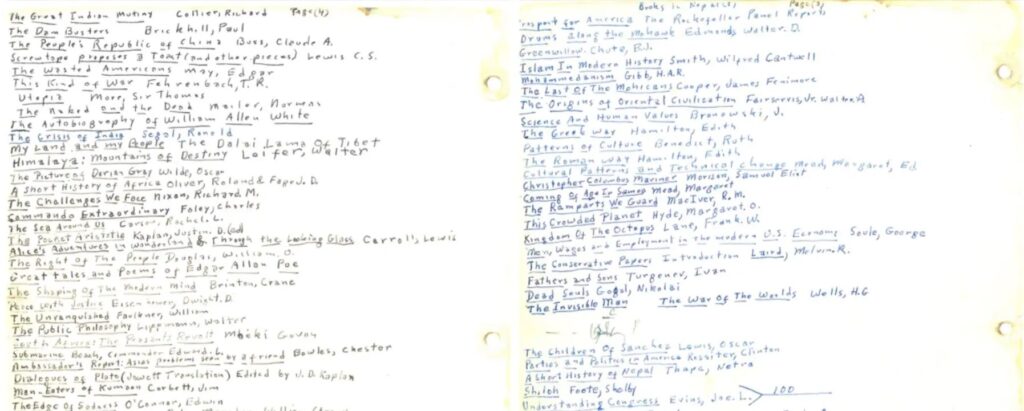 The Great Indian Mutiny Collier, Richard Page (4)
The Dam Busters Brickhill, Paul
The People's Republic of China Buss, Claude A.
Screwtape proposes a Toast (and other pieces) Lewis C.S.
The Wasted Americans May, Edgar
This Kind of War Fehrenbach, T.R.
Utopia More, Sir Thomas
The Naked and the Dead Mailer, Norman
The Autobiography of William Allen White
The Crisis of India Segal, Ronald
My Land and my People The Dalai Lama Of Tibet
Himalaya: Mountains of Destiny Walter
The Picture of Dorian Gray Wilde, Oscar
A Short History of Africa Oliver, Roland & Fage J.D.
The Challenges We Face Nixon, Richard M.
Commando Extraordinary Foley, Charles
The Sea Around Us Carson, Rachel L.
The Pocket Aristotle Kaplan, Justin D.
Alice's Adventures in Wonderland & Through the Looking Glass Carroll, Lewis
The Right of The People Douglas, William, O.
Great Tales and Poems of Edgar Allan Poe
The Shaping Of The Modern Mind Brinton, Crane
Peace With Justice Eisenhower, Dwight D.
The Unvanquished Faulkner, William
The Public Philosophy Lippmann, Walter
South Africa: The Peasants Revolt Mbeki Govan
Submarine Beach, Commander Edward L.
Ambassador's Report: Asias problems seen by a friend Bowles, Chester
Dialogues of Plato (Jowett Translation) Edited by J.D. Kaplan
Man-Eaters of Kumaon Corbett, Jim
The Edge Of Sadness O'Connor, Edwin
Books in Nepalese Page (3)
Prospect for America The Rockefeller Panel Reports
Drums along the Mohawk Edmonds, Walter D.
Greenwillow, Chute, B.J.
Islam In Modern History Smith, Wilfred Cantwell
Mohammedanism Gibb, H.A.R.
The Last Of The Mohicans Cooper, James Fenimore
The Origins of Oriental Civilization Fairservis, Jr. Walter A
Science And Human Values Bronowski, J.
The Greek Way Hamilton, Edith
Patterns of Culture Benedict, Ruth
The Roman Way Hamilton, Edith
Cultural Patterns and Technical Change Mead, Margaret, Ed
Christopher Columbus Mariner Morison, Samuel Eliot
Coming Of Age In Samoa Mead, Margaret
The Ramparts We Guard MacIver, R.M.
This Crowded Planet Hyde, Margaret O.
Kingdom Of The Octopus Lane, Frank W.
Men, Wages and Employment in the modern U.S. Economy Soule, George
The Conservative Papers Introduction Laird, Melvin R.
Fathers and Sons Turgenev, Ivan
Dead Souls Gogol, Nikolai
The Invisible Man The War Of The Worlds Wells, H.G
The Children Of Sanchez Lewis, Oscar
Parties and Politics in America Rossiter, Clinton
A Short History of Nepal Thapa, Netra
Shiloh Foote, Shelby
Understanding Congress Evins, Joe L. 100